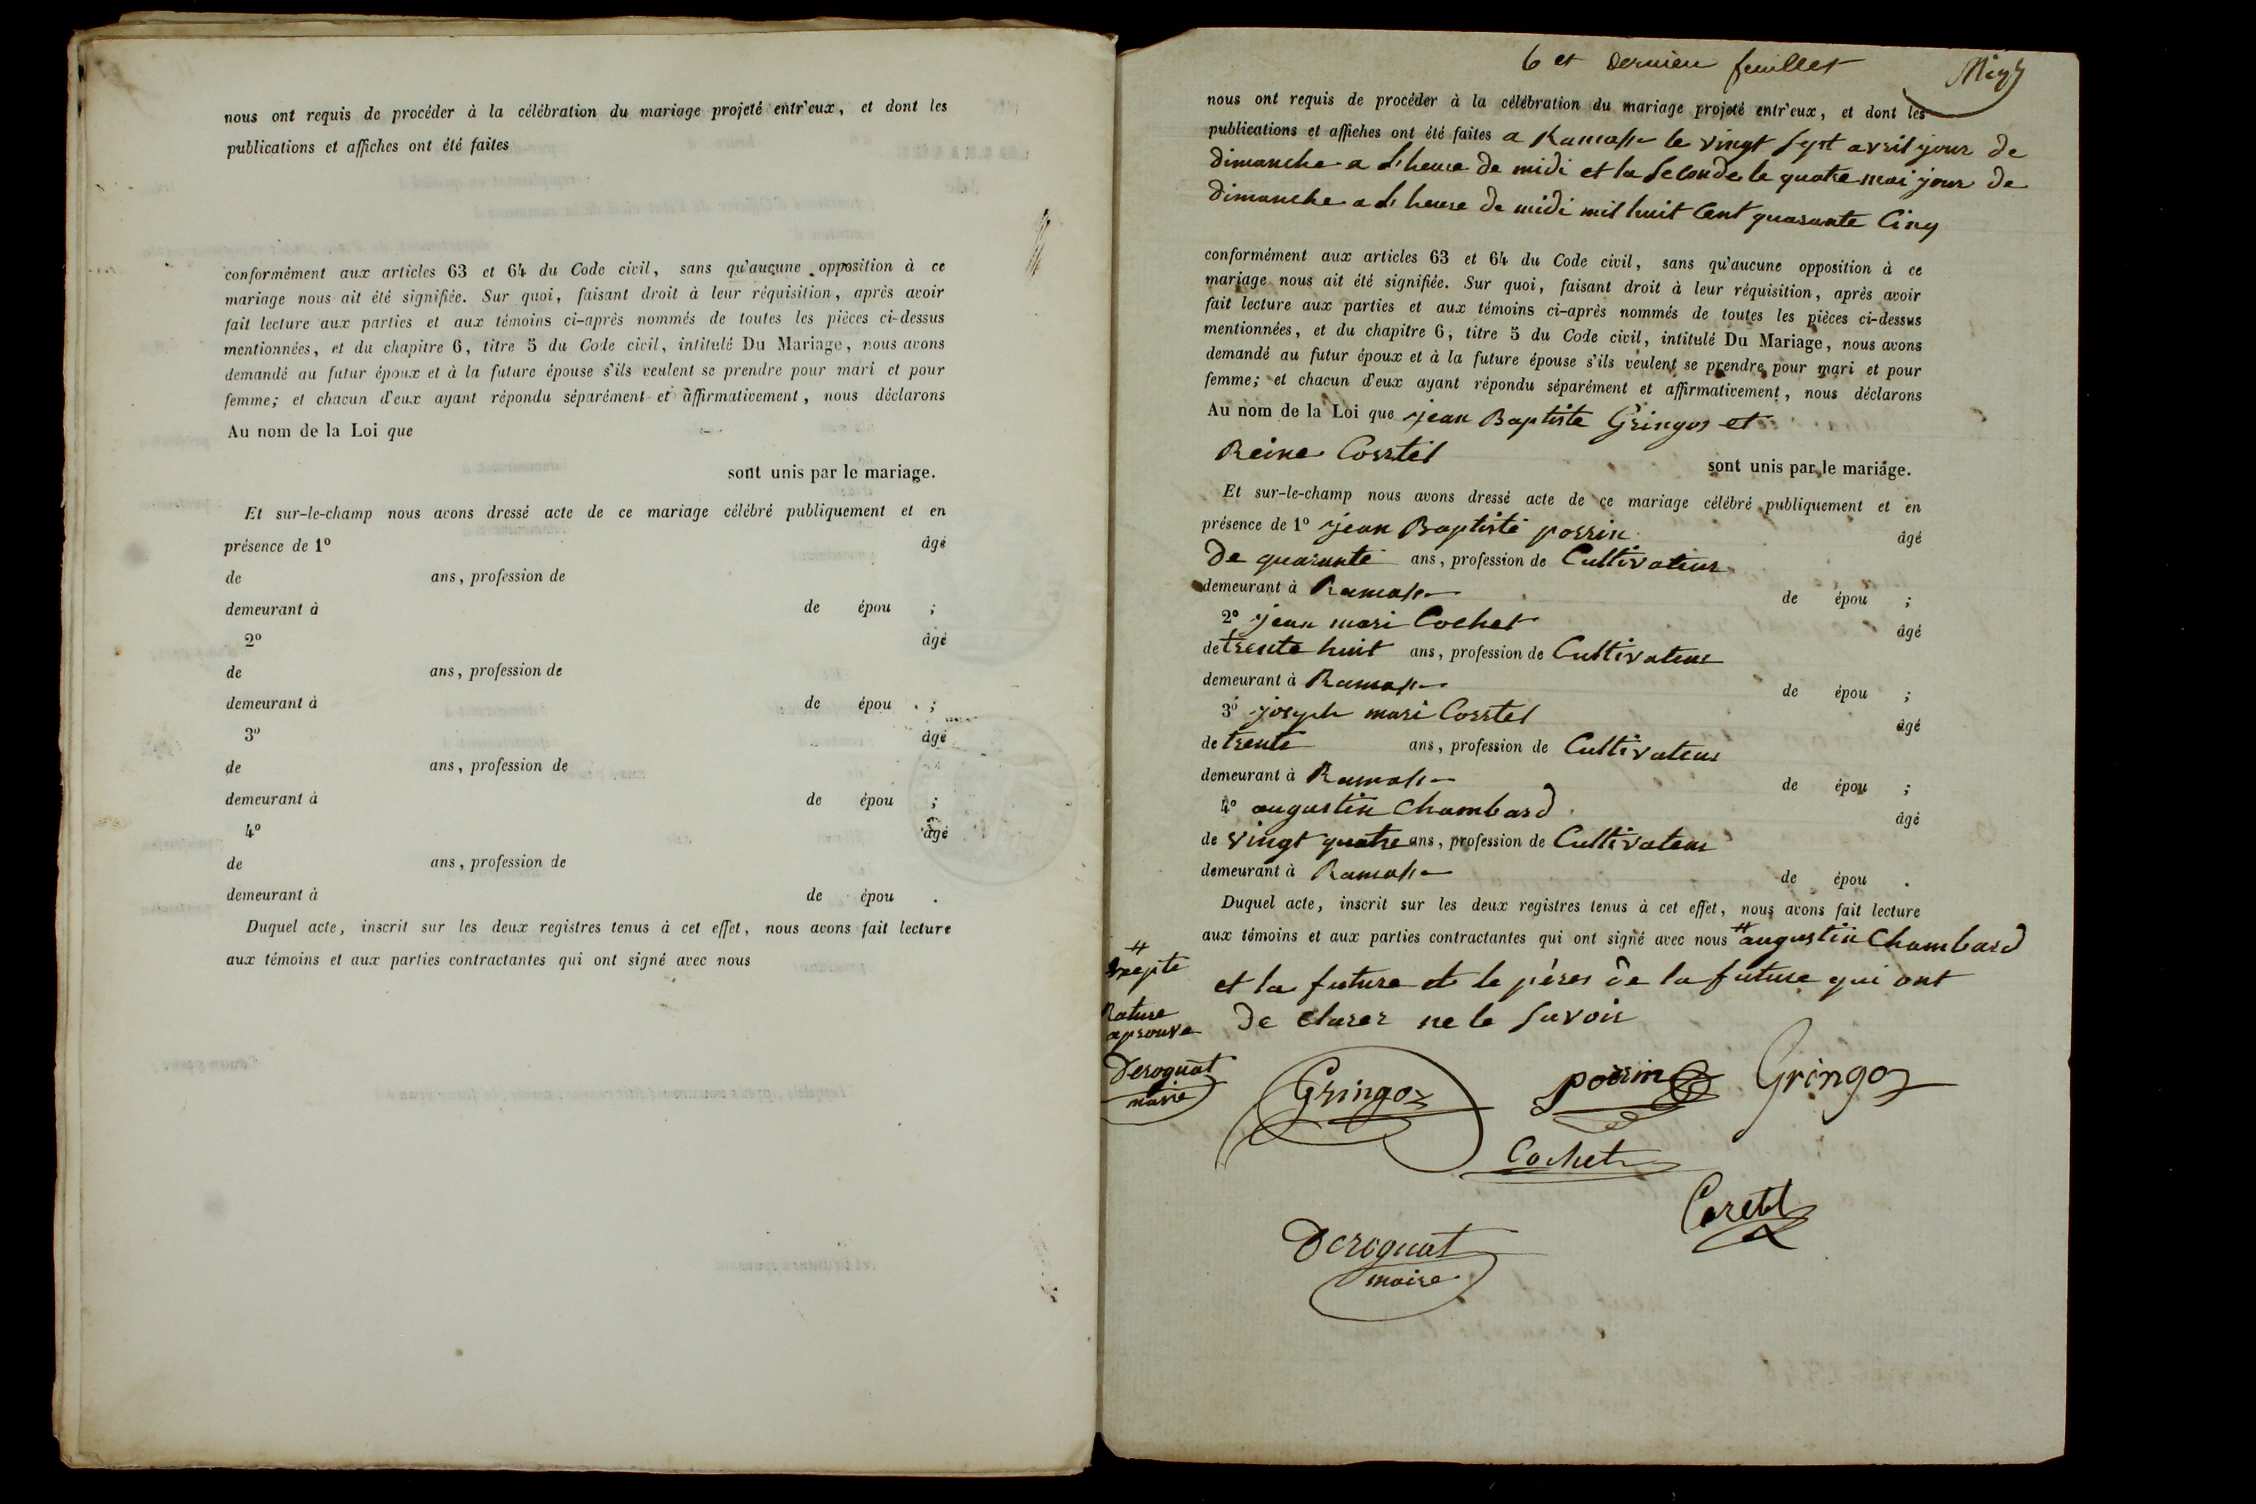 nous ont requis de procéder à la célébration du mariage projeté entr'eux, et dont les
publications et affiches ont été faites
conformément aux articles 63 et 64 du Code civil, sans qu'aucune opposition à ce
mariage nous ait été signifiée. Sur quoi, faisant droit à leur réquisition, après avoir
fait lecture aux parties et aux témoins ci-après nommés de toutes les pièces ci-dessus
mentionnées, et du chapitre 6, titre 5 du Code civil, intitulé Du Mariage, nous avons
demandé au futur époux et à la future épouse s'ils veulent se prendre pour mari et pour
femme; et chacun d'eux ayant répondu séparément et affirmativement, nous déclarons
Au nom de la Loi que
sont unis par le mariage.
Et sur-le-champ nous avons dressé acte de ce mariage célébré publiquement et en
présence de 1º âgé
de ans, profession de
demeurant à de épou ;
2º âgé
de ans, profession de
demeurant à de épou ;
3º âgé
de ans, profession de
demeurant à de épou ;
4º âgé
de ans, profession de
demeurant à de épou .
Duquel acte, inscrit sur les deux registres tenus à cet effet, nous avons fait lecture
aux témoins et aux parties contractantes qui ont signé avec nous
6 et dernier feuillet
nous ont requis de procéder à la célébration du mariage projeté entr'eux, et dont les
publications et affiches ont été faites a Ramasse le vingt sept avril jour de
dimanche a l'heure de midi et la seconde le quatre mai jour de
dimanche a l'heure de midi mil huit cent quarante cinq
conformément aux articles 63 et 64 du Code civil, sans qu'aucune opposition à ce
mariage nous ait été signifiée. Sur quoi, faisant droit à leur réquisition, après avoir
fait lecture aux parties et aux témoins ci-après nommés de toutes les pièces ci-dessus
mentionnées, et du chapitre 6, titre 5 du Code civil, intitulé Du Mariage, nous avons
demandé au futur époux et à la future épouse s'ils veulent se prendre pour mari et pour
femme; et chacun d'eux ayant répondu séparément et affirmativement, nous déclarons
Au nom de la Loi que jean Baptiste Gringoz et
Reine Corrtel
sont unis par le mariage.
Et sur-le-champ nous avons dressé acte de ce mariage célébré publiquement et en
présence de 1º jean Baptiste porrin âgé
de quarante ans, profession de Cultivateur
demeurant à Ramasse de épou ;
2º jean mari Cochet âgé
de trente huit ans, profession de Cultivateur
demeurant à Ramasse de épou ;
3º joseph mari Corrtel âgé
de trente ans, profession de Cultivateur
demeurant à Ramasse de épou ;
4º augustin Chambard âgé
de vingt quatre ans, profession de Cultivateur
demeurant à Ramasse de épou .
Duquel acte, inscrit sur les deux registres tenus à cet effet, nous avons fait lecture
aux témoins et aux parties contractantes qui ont signé avec nous # augustin Chambard
et la future et le péres de la future qui ont
de clarer ne le savoir
#
exepte
Rature
aprouve
Deroguat
maire
Gringoz
porrin
Gringoz
Cochet
Coretl
Deroguat
maire